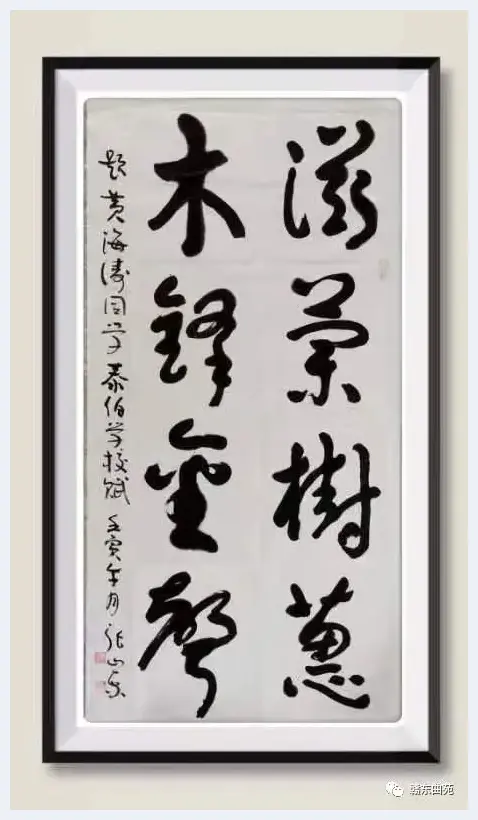 滋蘭樹蕙
木鐸金聲
題黃海濤同学泰伯学校賦 壬寅年月 張山
赣东曲苑